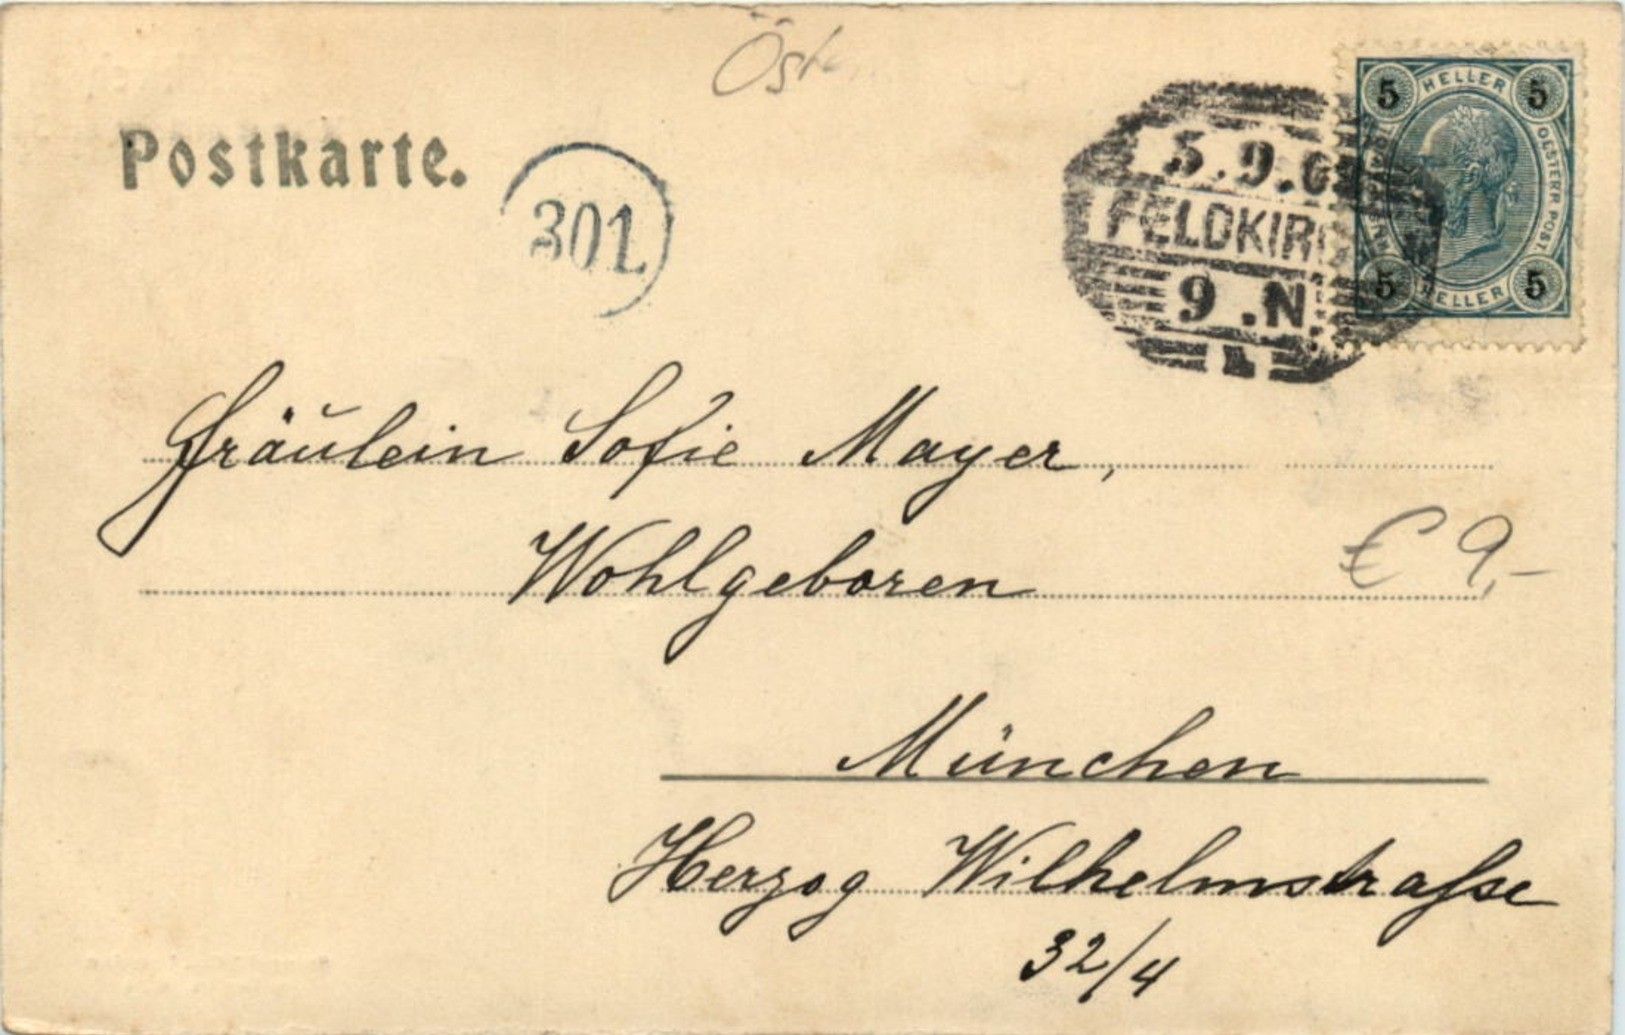 Postkarte.
301.
5.9.0
FELDKIR
9.N.
1
5 HELLER 5
OESTERR. POST.
5 HELLER 5
Fräulein Sofie Mayer,
Wohlgeboren
€ 9,-
München
Herzog Wilhelmstraſse
32/4